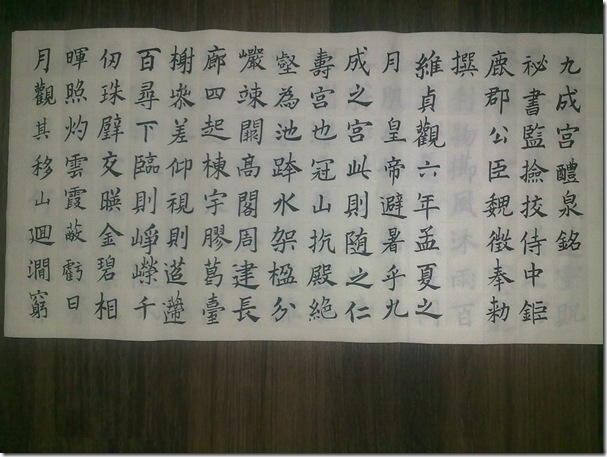 九成宫醴泉銘
祕書監撿挍侍中鉅
鹿郡公臣魏徵奉勅
撰
維貞觀六年孟夏之
月皇帝避暑乎九
成之宫此則随之仁
壽宫也冠山抗殿絶
壑為池跨水架楹分
巗竦闕高閣周建長
廊四起棟宇膠葛臺
榭叅差仰視則迢遰
百尋下臨則崢嶸千
仞珠璧交暎金碧相
暉照灼雲霞蔽虧日
月觀其移山迴澗窮